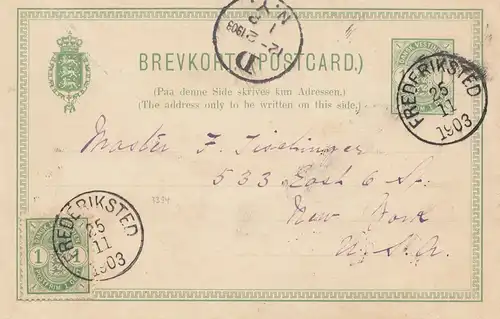 N.Y.
12-2
1903
D
BREVKORT (POSTCARD.)
(Paa denne Side skrives kun Adressen.)
(The address only to be written on this side.)
FREDERIKSTED
25
11
1903
Master F. Tischinger
533 East 6 St.
New York
U.S.A.
FREDERIKSTED
25
11
1903
1 1